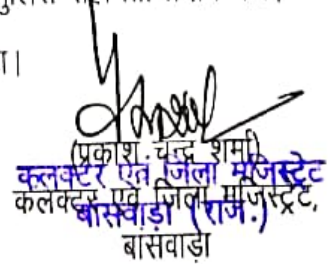 ा।
(प्रकाश चन्द्र शर्मा)
कलक्टर एवं जिला मजिस्ट्रेट
कलेक्टर एवं जिला मजिस्ट्रेट,
बांसवाड़ा (राज.)
बांसवाड़ा